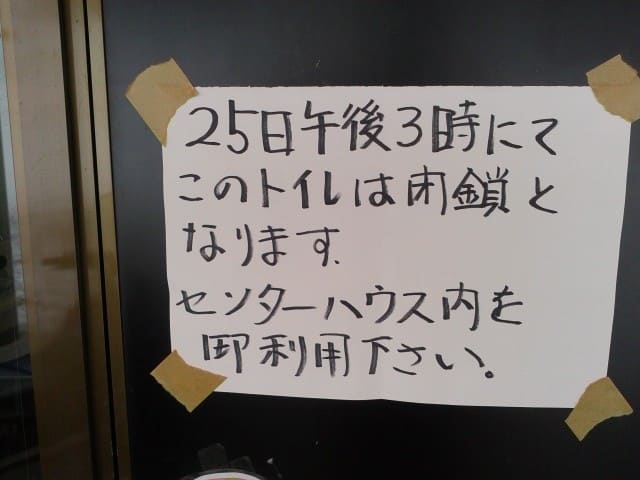 25日午後3時にて
このトイレは閉鎖と
なります.
センターハウス内を
御利用下さい。